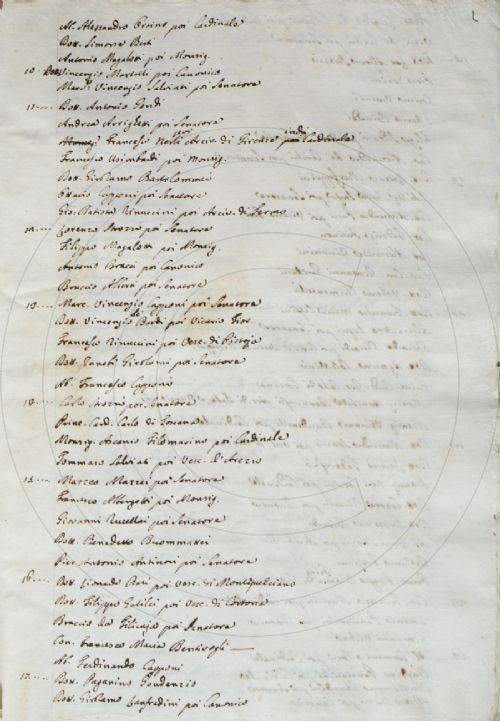 2
M. Alessandro Orsino poi Cardinale
Dott. Simone Berti
Antonio Magalotti poi Monsig.
10 Dott. Vincenzio Martelli poi Canonico
March. Vincenzio Salviati poi Senatore
11 Dott. Antonio Gondi
Andrea Arrighetti poi Senatore
Francesco Nerli poi Arciv. di Firenze indi Cardinale
Francesco Usimbardi poi Monsig.
Dott. Girolamo Bartolommei
Ottavio Capponi poi Senatore
Gio. Batista Rinuccini poi Arciv. di Fermo
Lorenzo Strozzi poi Senatore
Filippo Magalotti poi Monsig.
Antonio Bracci poi Canonico
Braccio Alberti poi Senatore
13 Marc. Vincenzio Capponi poi Senatore
Dott. Vincenzio de Bardi poi Vicario Fior.
Francesco Rinuccini poi Vesc. di Pistoja
Dott. Zanobi Girolami poi Senatore
Ab. Francesco Capponi
Carlo Strozzi poi Senatore
Princ. Card. Carlo di Toscana
Monsig. Ascanio Filomarino poi Cardinale
Tommaso Salviati poi Vesc. d'Arezzo
Francesco Albergotti poi Monsig.
Giovanni Rucellai poi Senatore
Dott. Benedetto Buommattei
Pier Antonio Antinori poi Senatore
16 Dott. Lionardo Dati poi Vesc. di Montepulciano
Dott. Filippo Galilei poi Vesc. di Cortona
Braccio da Filicaja poi Senatore
Con. Francesco Maria Bentivogli
Ab. Ferdinando Capponi
17 Dott. Paganino Gaudenzio
Dott. Girolamo Lanfredini poi Canonico